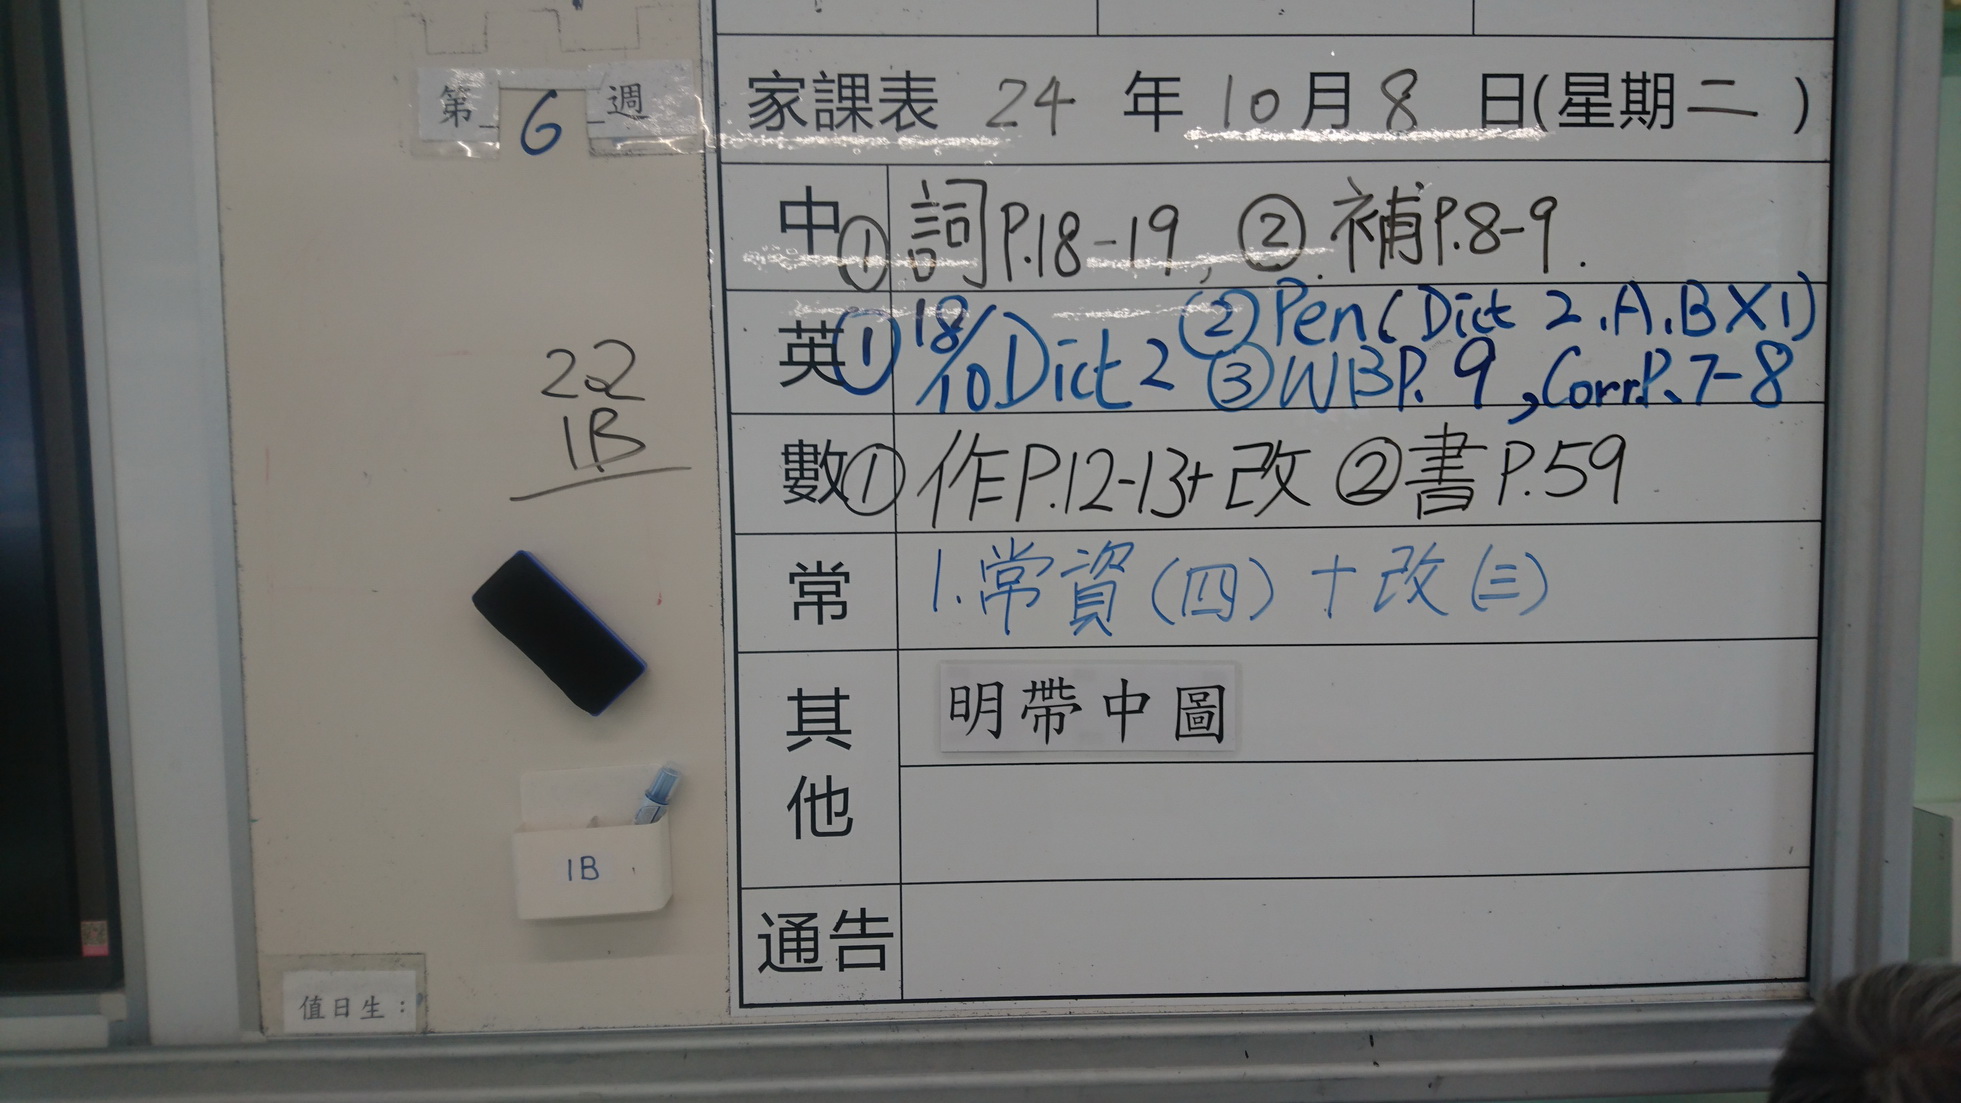 第 6 週
家課表 24 年 10 月 8 日(星期二)
中 ① 詞P.18-19, ② 補P.8-9.
英 ① 18/10 Dict 2 ② Pen (Dict 2.A.B X1)
③ WB P.9, Corr.P.7-8
22
1B
數 ① 作P.12-13+改 ② 書P.59
常 1.常資(四)+改(三)
其他 明帶中圖
1B
通告
值日生: